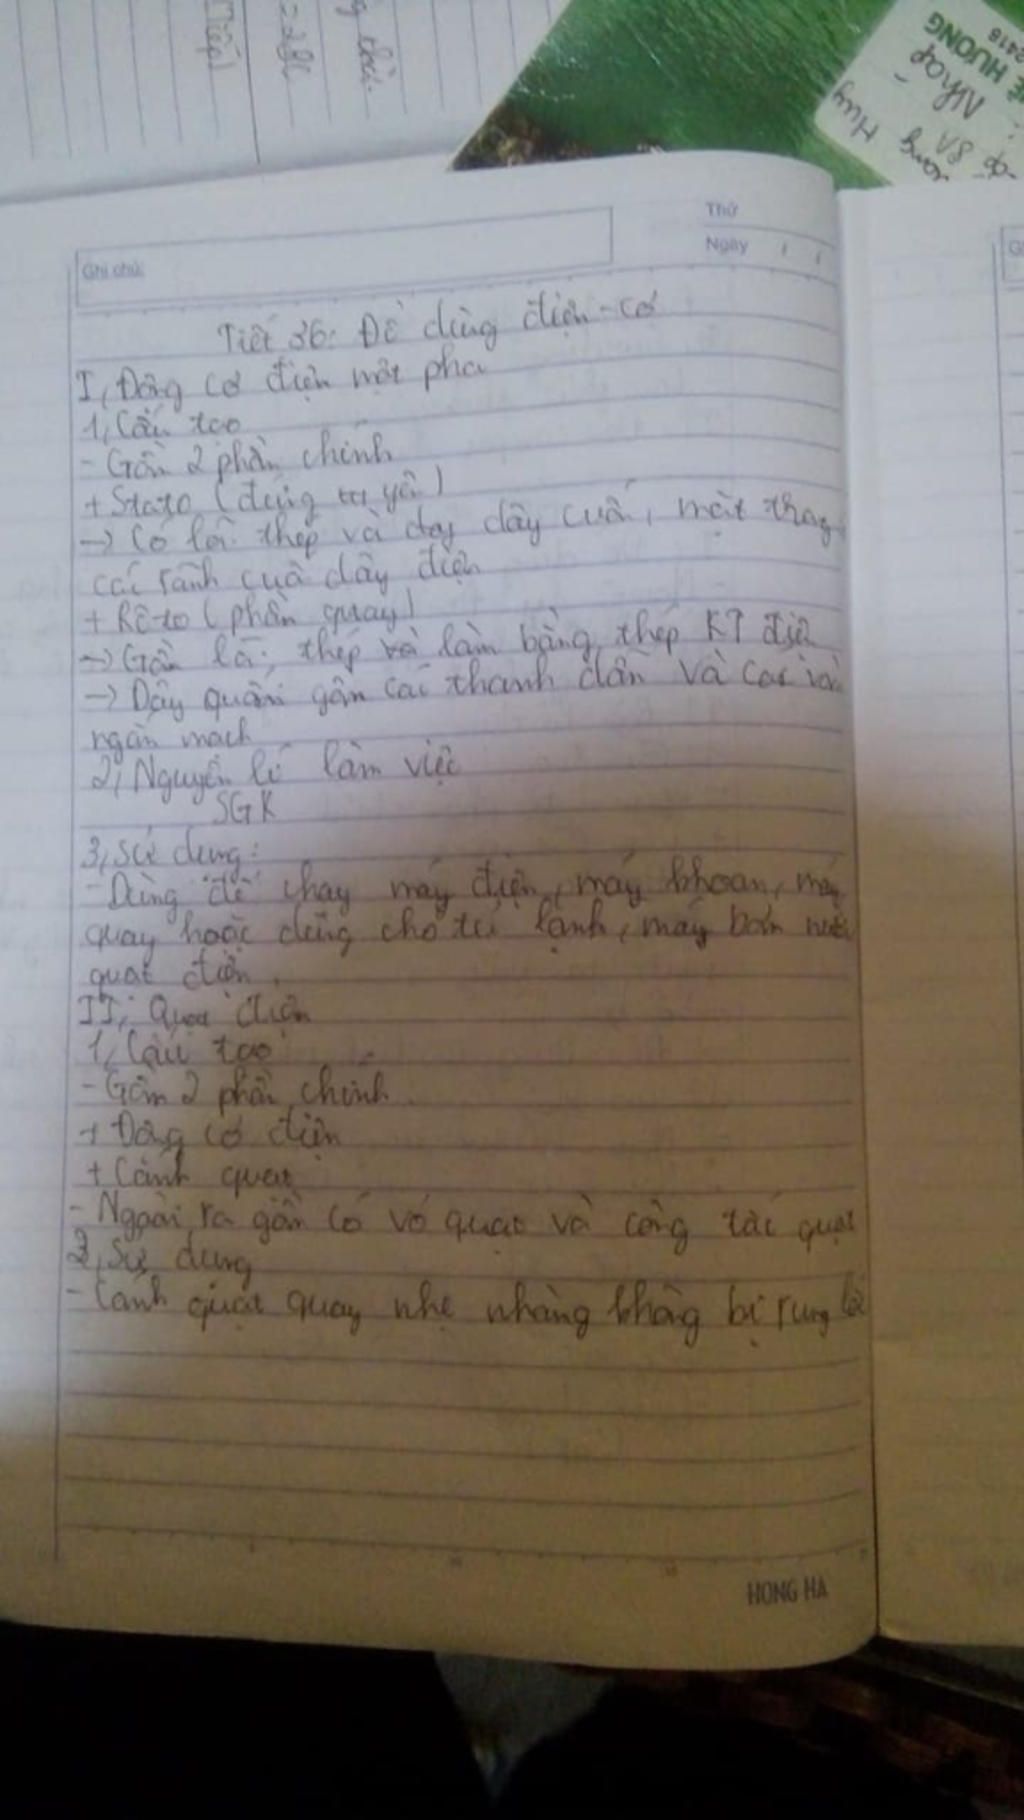 HƯƠNG
2418
Nhap
Huy
8A
Thứ
Ngày / /
Ghi chú:
Tiết 36: Đồ dùng điện - cơ
I, Động cơ điện một pha
1, Cấu tạo
- Gồm 2 phần chính
+ Stato (đứng yên)
-> Có lõi thép và dây cuấn, mặt trong
các rãnh quấ dây điện
+ Rôto (phần quay)
-> Gồm lõi thép và làm bằng thép KT điện
-> Dây quấn gồm các thanh dẫn và các vòng
ngắn mạch
2, Nguyên lí làm việc
SGK
3, Sử dụng:
- Dùng để chạy máy điện, máy khoan, máy
quay hoặc dùng cho tủ lạnh, máy bơm nước
quạt điện.
II, Quạt điện
1, Cấu tạo
- Gồm 2 phần chính
+ Động cơ điện
+ Cánh quạt
- Ngoài ra gồm có vỏ quạt và công tắc quạt
2, Sử dụng
- Cánh quạt quay nhẹ nhàng không bị rung
HONG HA